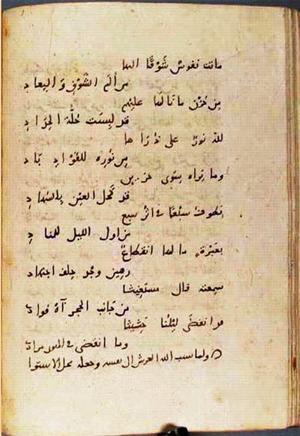 ماتت نفوس شوقا اليها
من ألم الشوق والبعاد
من حزن ما نالها عليهم
قد لبست حلة الحداد
لله نور على ذراها
من نوره للفؤاد باد
وما تراه سوى حزين
قد كحل العين بالسهاد
يطوف سبعا في اثر سبع
من اول الليل للمناد
بعبرة ما لها انقطاع
رهين وجد حلف اجتهاد
سمعته قال مستغيثا
من جانب الحجر آه فؤاد
قد انقضى ليلنا حثيثا
وما انقضى في الهوى مراد
ولما نسب الله العرش الى نفسه وجعله محل الاستوا